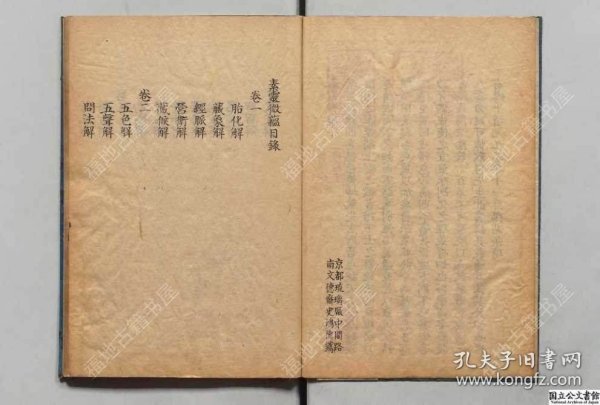 京都琉璃廠中間路
南文德齋史鴻德鐫
素靈微蘊目錄
卷一
胎化解
藏象解
經脈解
營衛解
藏候解
卷二
五色解
五聲解
問法解
福地古籍书屋
孔夫子旧书网
www.kongfz.com
国立公文書館
National Archives of Japan